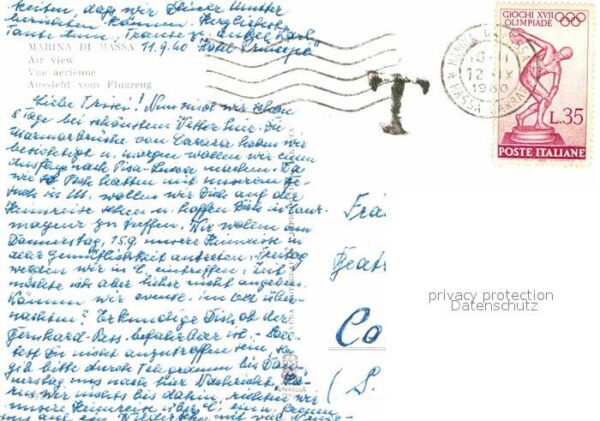 keiten, daß wir Deiner Mutter
berichten können. Herzlichste
Tante Anni, Tante Zi, Onkel Karl,
MARINA DI MASSA 11.9.60 Hotel Principe
Air view
Vue aérienne
Aussicht vom Flugzeug
Liebe Ursel! Nun sind wir schon
8 Tage bei schönstem Wetter hier. Die
Marmorbrüche von Carrara haben wir
besichtigt u. morgen wollen wir einen
Ausflug nach Pisa-Lucca machen. Da
wir so Pech hatten mit unserem Be-
such in St. wollen wir Dich auf der
Heimreise sehen u. hoffen Dich in Cour-
mayeur zu treffen. Wir wollen am
Donnerstag, 15.9. unsere Heimreise in
aller Gemütlichkeit antreten. Freitag
werden wir in C. eintreffen. Zeit
möchte ich aber lieber nicht angeben.
Können wir evtl. im Ort über-
nachten? Erkundige Dich ob der
Bernhard-Pass befahrbar ist. - Soll-
test Du nicht anzutreffen sein, so
gib bitte durch Telegramm bis Don-
nerstag uns nach hier Nachricht. Hö-
ren wir nichts bis dahin, richten wir
unsere Heimreise über C. ein u. freuen
uns auf ein Wiedersehen mit
T
MARINA DI MASSA
12 IX
1960
GIOCHI XVII
OLIMPIADE
L.35
POSTE ITALIANE
Co
(S.
privacy protection
Datenschutz